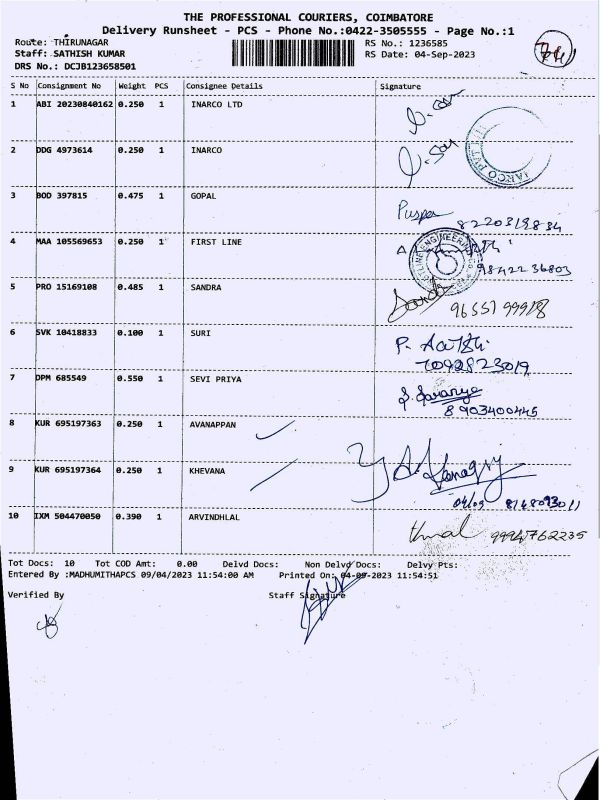 THE PROFESSIONAL COURIERS, COIMBATORE
Delivery Runsheet - PCS - Phone No.:0422-3505555 - Page No.:1
Route: THIRUNAGAR RS No.: 1236585
Staff: SATHISH KUMAR RS Date: 04-Sep-2023
DRS No.: DCJB123658501
S No Consignment No Weight PCS Consignee Details Signature
1 ABI 20230840162 0.250 1 INARCO LTD
2 DDG 4973614 0.250 1 INARCO
3 BOD 397815 0.475 1 GOPAL
Puspa 8220319834
4 MAA 105569653 0.250 1 FIRST LINE
9842236803
5 PRO 15169108 0.485 1 SANDRA
6 SVK 10418833 0.100 1 SURI
7092823019
7 DPM 685549 0.550 1 SEVI PRIYA
8903400445
8 KUR 695197363 0.250 1 AVANAPPAN
9 KUR 695197364 0.250 1 KHEVANA
04/09
10 IXM 504470050 0.390 1 ARVINDHLAL
9994762235
Tot Docs: 10 Tot COD Amt: 0.00 Delvd Docs: Non Delvd Docs: Delvy Pts:
Entered By :MADHUMITHAPCS 09/04/2023 11:54:00 AM Printed On: 04-09-2023 11:54:51
Verified By Staff Signature